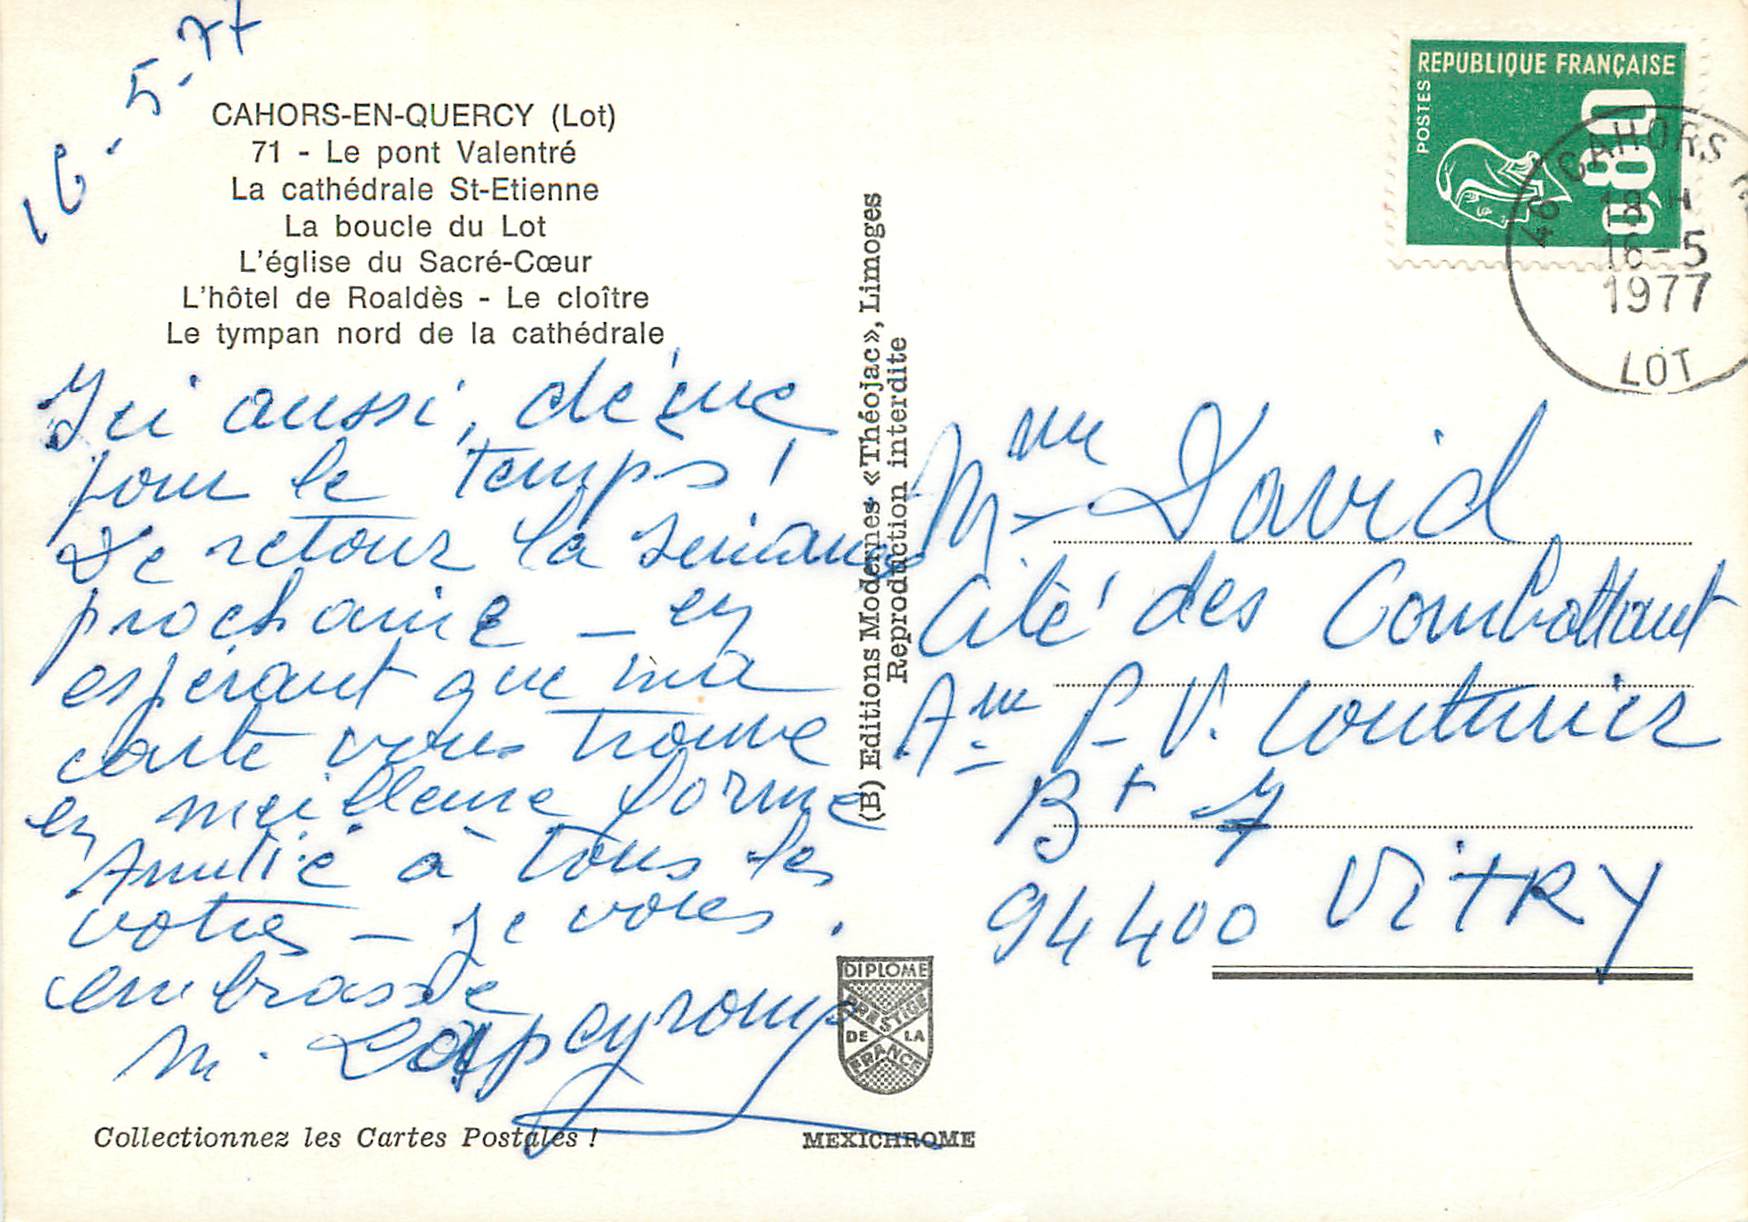 16-5-77
CAHORS-EN-QUERCY (Lot)
71 - Le pont Valentré
La cathédrale St-Etienne
La boucle du Lot
L'église du Sacré-Cœur
L'hôtel de Roaldès - Le cloître
Le tympan nord de la cathédrale
Ici aussi, déçue
pour le temps !
De retour la semaine
prochaine - en
espérant que ma
carte vous trouve
en meilleure forme
Amitié à tous les
votres - je vous
embrasse
M. Lapeyronnp
Collectionnez les Cartes Postales !
(B) Editions Modernes «Théojac», Limoges
Reproduction interdite
DIPLOME
PRESTIGE
DE LA
FRANCE
MEXICHROME
REPUBLIQUE FRANÇAISE
POSTES
0,80
46 CAHORS
18 H
16-5
1977
LOT
Mme David
Cité des Combattant
Ame P-V. Couturier
Bt 7
94400 VitRY